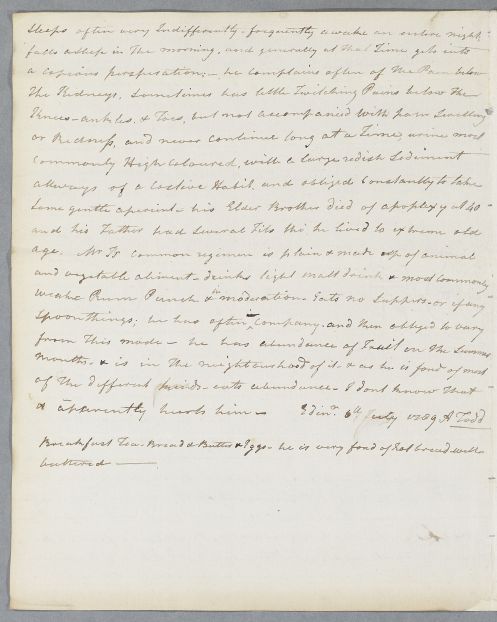 Sleeps often very Indifferently- frequently awake an entire night,
falls asleep in the morning, and generally at that Time gets into
a copious perspiration;- he complains often of the Pain below
the Kidneys, Sometimes has little Twitching Pains below the
Knees- ankles, & Toes, but not accompanied with pain Swelling
or Redness, and never continue long at a Time, urine most
Commonly High Coloured, with a large redish Sediment
allways of a Costive Habit and obliged Constantly to take
Some gentle aperient- his Elder Brother died of apoplexy at 40-
and his Father had Several Fits tho' he lived to extreme old
age. Mr Ts common regimen is plain & made up of animal
and vegetable aliment- drinks light small drink & most Commonly
weake Rum Punch in moderation- Eats no Suppers- or if any
Spoonthings; he has often Company- and then obliged to vary
from this mode- he has abundance of Fruit in the Summer
months- & is in the neighbourhood of it- & as he is fond of most
of the different kinds- eats abundance- I dont know that
it aparently hurts him- Edinr. 6th July 1789 A Todd
Breakfast Tea- Bread & Butter & Eggs- he is very fond of hot bread well
buttered-